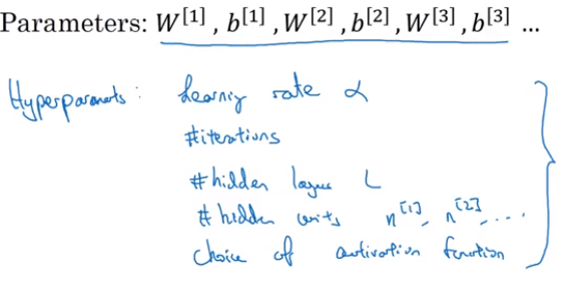 Parameters: W[1] , b[1] , W[2] , b[2] , W[3] , b[3] ...
Hyperparameters : Learning rate α
#iterations
#hidden layers L
# hidden units n[1], n[2], ....
choice of activation function